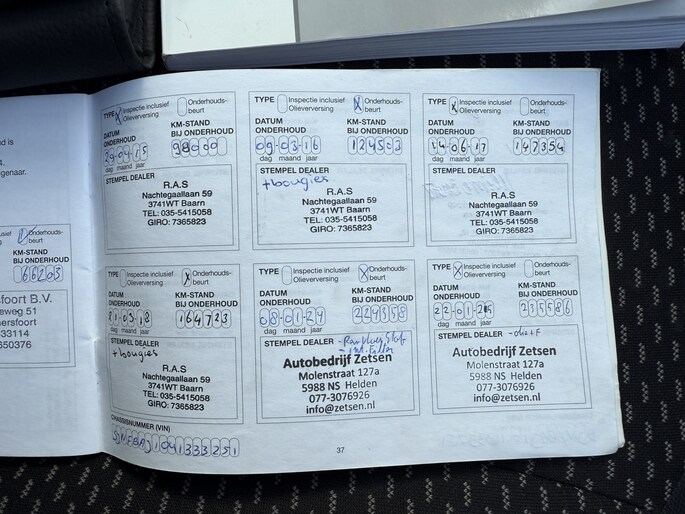 d is
4.
igenaar.
usief
Onderhouds-
beurt
KM-STAND
BIJ ONDERHOUD
66203
sfoort B.V.
eweg 51
nersfoort
33114
650376
TYPE X Inspectie inclusief Olieverversing Onderhouds-beurt
DATUM ONDERHOUD KM-STAND BIJ ONDERHOUD
29-04-15 98000
dag maand jaar
STEMPEL DEALER
R.A.S
Nachtegaallaan 59
3741WT Baarn
TEL: 035-5415058
GIRO: 7365823
TYPE Inspectie inclusief Olieverversing X Onderhouds-beurt
DATUM ONDERHOUD KM-STAND BIJ ONDERHOUD
09-03-16 124503
dag maand jaar
STEMPEL DEALER
+bougies
R.A.S
Nachtegaallaan 59
3741WT Baarn
TEL: 035-5415058
GIRO: 7365823
TYPE X Inspectie inclusief Olieverversing Onderhouds-beurt
DATUM ONDERHOUD KM-STAND BIJ ONDERHOUD
14-06-17 147354
dag maand jaar
STEMPEL DEALER
R.A.S
Nachtegaallaan 59
3741WT Baarn
TEL: 035-5415058
GIRO: 7365823
TYPE Inspectie inclusief Olieverversing X Onderhouds-beurt
DATUM ONDERHOUD KM-STAND BIJ ONDERHOUD
21-03-18 164723
dag maand jaar
STEMPEL DEALER
+bougies
R.A.S
Nachtegaallaan 59
3741WT Baarn
TEL: 035-5415058
GIRO: 7365823
TYPE Inspectie inclusief Olieverversing X Onderhouds-beurt
DATUM ONDERHOUD KM-STAND BIJ ONDERHOUD
08-01-24 229358
dag maand jaar
STEMPEL DEALER
Autobedrijf Zetsen
Molenstraat 127a
5988 NS Helden
077-3076926
info@zetsen.nl
TYPE X Inspectie inclusief Olieverversing Onderhouds-beurt
DATUM ONDERHOUD KM-STAND BIJ ONDERHOUD
22-01-25 235586
dag maand jaar
STEMPEL DEALER -olie+F
Autobedrijf Zetsen
Molenstraat 127a
5988 NS Helden
077-3076926
info@zetsen.nl
CHASSISNUMMER (VIN)
37